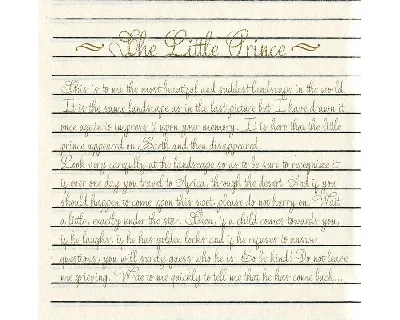 ~ The Little Prince ~
This is to me the most beautiful and saddest landscape in the world.
It is the same landscape as in the last picture but I have drawn it
once again to impress it upon your memory. It is here that the little
prince appeared on Earth and then disappeared.
Look very carefully at the landscape so as to be sure to recognize it
if ever one day you travel to Africa, through the desert. And if you
should happen to come upon this spot, please do not hurry on. Wait
a little, exactly under the star. Then, if a child comes towards you,
if he laughs, if he has golden locks and if he refuses to answer
questions, you will surely guess who he is. So be kind! Do not leave
me grieving. Write to me quickly to tell me that he has come back...